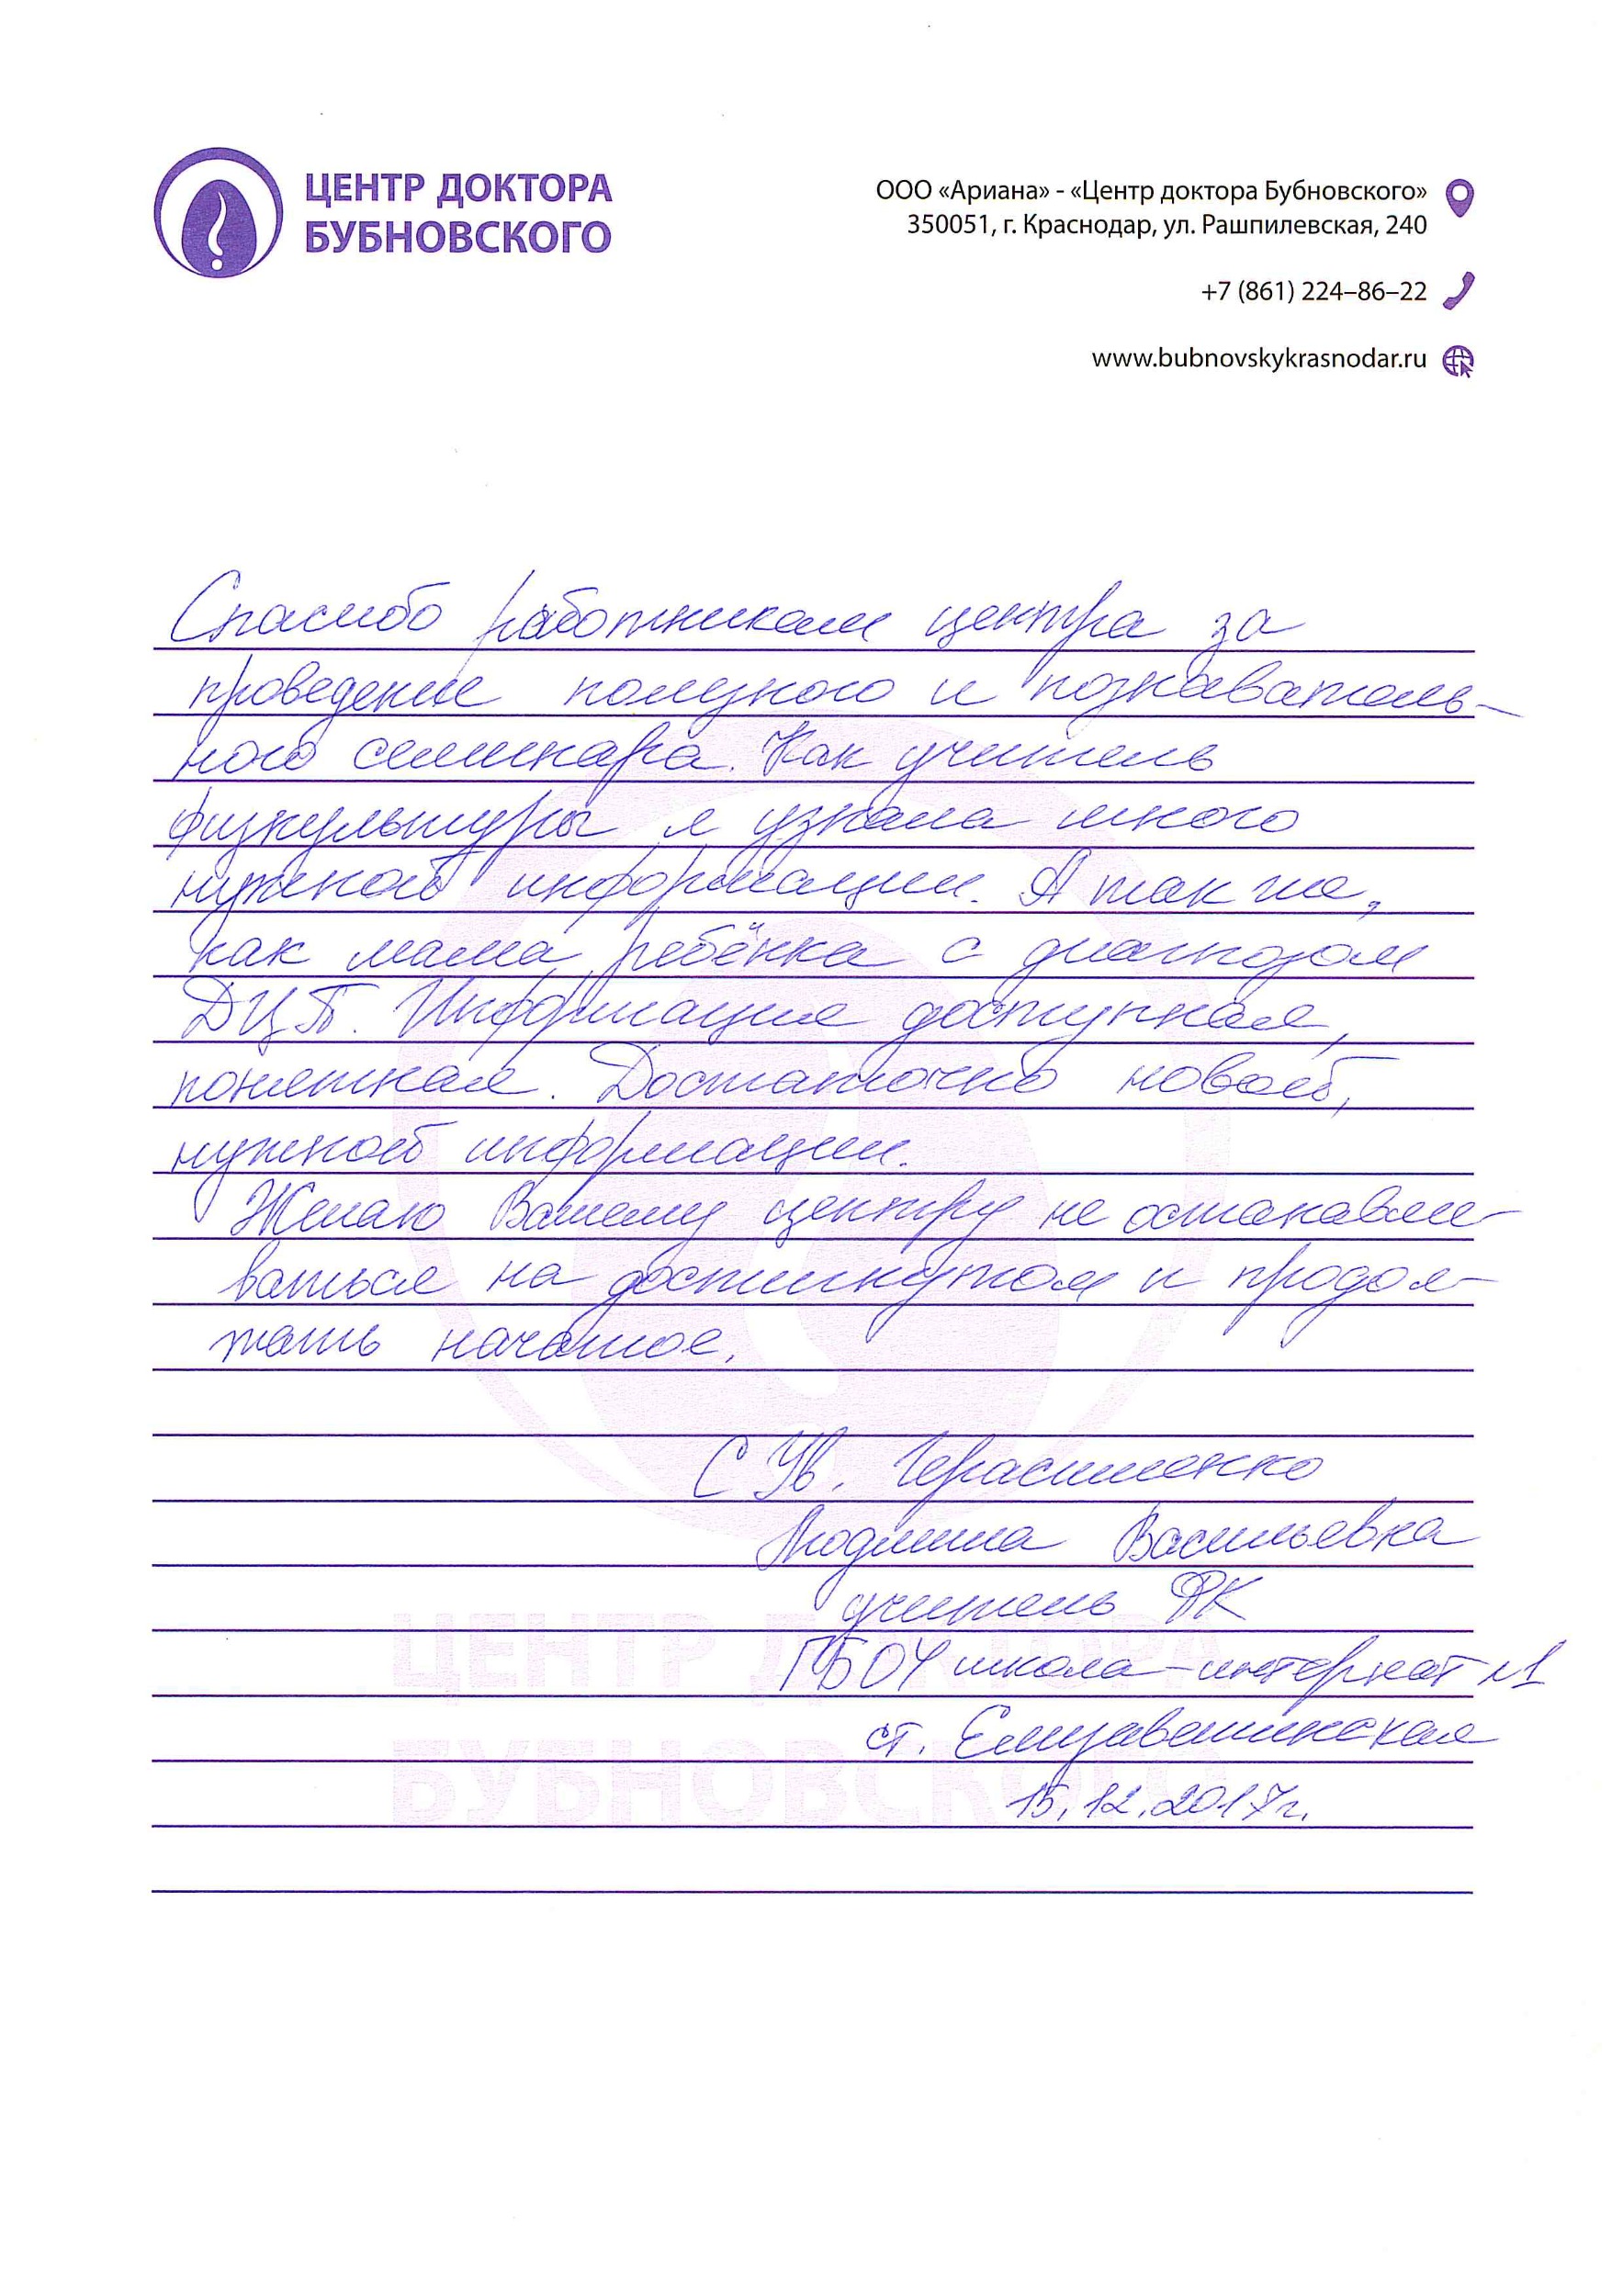 ЦЕНТР ДОКТОРА
БУБНОВСКОГО
ООО «Ариана» - «Центр доктора Бубновского»
350051, г. Краснодар, ул. Рашпилевская, 240
+7 (861) 224–86–22
www.bubnovskykrasnodar.ru
Спасибо работникам центра за
проведение полезного и познаватель-
ного семинара. Как учитель
физкультуры я узнала много
нужной информации. А так же,
как мама ребёнка с диагнозом
ДЦП. Информация доступная,
понятная. Достаточно новой,
нужной информации.
Желаю Вашему центру не останавли-
ваться на достигнутом и продол-
жать начатое.
С Ув. Герасименко
Людмила Васильевна
учитель ФК
ГБОУ школа-интернат №1
ст. Елизаветинская
15.12.2017г.
ЦЕНТР ДОКТОРА
БУБНОВСКОГО